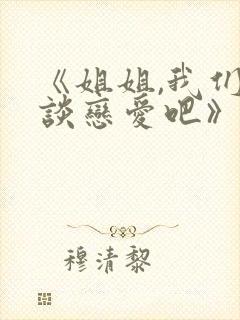 《姐姐,我们
談戀愛吧》
穆清黎